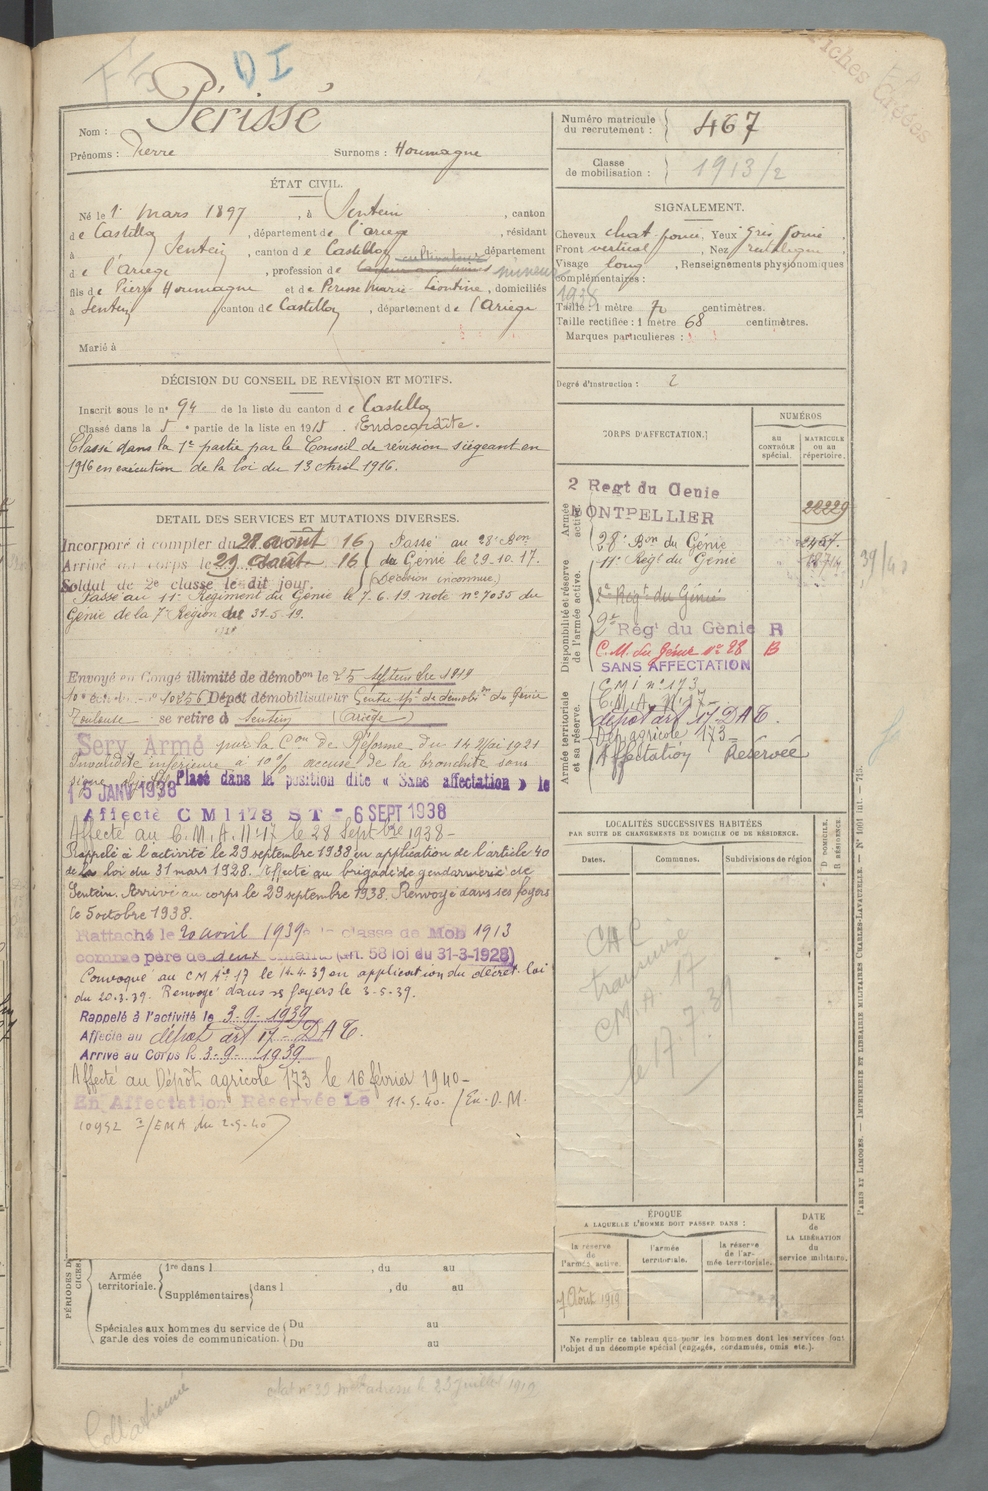 D I
Fiches Créées
Nom : Périssé
Prénoms : Pierre Surnoms : Houmagne
Numéro matricule du recrutement : 467
Classe de mobilisation : 1913/2
ÉTAT CIVIL.
Né le 1er mars 1897, à Sentein, canton
de Castillon, département de l'ariege, résidant
à Sentein, canton de Castillon département
de l'Ariege, profession de cultivateur mineur
fils de Pierre Houmagne et de Perisse Marie Léontine, domiciliés
à Sentein canton de Castillon, département de l'Ariège
Marié à
SIGNALEMENT.
Cheveux chat. foncé. Yeux gris foncé.
Front vertical, Nez rectiligne
Visage long, Renseignements physionomiques
complémentaires :
1938
Taille : 1 mètre 70 centimètres.
Taille rectifiée : 1 mètre 68 centimètres.
Marques particulières :
Degré d'instruction : 2
DÉCISION DU CONSEIL DE REVISION ET MOTIFS.
Inscrit sous le n° 94 de la liste du canton de Castillon
Classé dans la 5e partie de la liste en 1915. Endocardite.
Classé dans la 1e partie par le Conseil de révision siégeant en
1916 en exécution de la loi du 13 Avril 1916.
DETAIL DES SERVICES ET MUTATIONS DIVERSES.
Incorporé à compter du 28 août 16
Arrivé au corps le 29 août 16
Soldat de 2e classe le dit jour.
Passé au 28e Bon
du Génie le 29.10.17.
(Décision inconnue)
Passé au 11e Régiment du Génie le 7.6.19 note n° 7035 du
Génie de la 7e Région du 31.5.19.
Envoyé en Congé illimité de démobon le 25 septembre 1919
10256 Dépôt démobilisateur Centre spl de démobon du Génie
Toulouse se retire à Sentein (Ariège)
Serv. Armé par la Con de Réforme du 14 Mai 1921
Invalidité inférieure à 10 % accuse de la bronchite sans
Placé dans la position dite « Sans affectation » le
15 JANV 1938
Affecté C M I 173 S T - 6 SEPT 1938
Affecté au C.M.A. N° 17 le 28 Septbre 1938 -
Rappelé à l'activité le 29 septembre 1938 en application de l'article 40
de la loi du 31 mars 1928. Affecté au brigade de gendarmerie de
Sentein. Arrivé au corps le 29 septembre 1938. Renvoyé dans ses foyers
le 5 octobre 1938.
Rattaché le 20 avril 1939 à la classe de Mob 1913
comme père de deux enfants (art. 58 loi du 31-3-1928)
Convoqué au C M A n° 17 le 14.4.39 en application du décret loi
du 20.3.39. Renvoyé dans ses foyers le 3-5-39.
Rappelé à l'activité le 3-9-1939
Affecté au dépôt art 17 - D A T.
Arrivé au Corps le 3-9-1939
Affecté au Dépôt agricole 173 le 16 février 1940 -
En Affectation Réservée Le 11-5-40. (En. D. M.
10952 3/EMA du 2-5-40)
CORPS D'AFFECTATION.
NUMÉROS
AU CONTRÔLE spécial.
MATRICULE ou au répertoire.
Armée active.
2 Regt du Genie
MONTPELLIER
20229
28e Bon du Génie
11e Régt du Génie
39/40
Disponibilité et réserve de l'armée active.
2e Régt du Génie
2e Régt du Génie R
C.M. du Génie N° 28 B
SANS AFFECTATION
Armée territoriale et sa réserve.
C M I n° 173
C.M.A. N° 17 -
dépôt art 17 - D A T.
Dép agricole 173 -
Affectation Réservée
LOCALITÉS SUCCESSIVES HABITÉES
PAR SUITE DE CHANGEMENTS DE DOMICILE OU DE RÉSIDENCE.
Dates. Communes. Subdivisions de région
D DOMICILE.
R RÉSIDENCE
transmise
C.M.A. 17
le 17.7.31
ÉPOQUE
A LAQUELLE L'HOMME DOIT PASSER DANS :
la réserve de l'armée active.
l'armée territoriale.
la réserve de l'armée territoriale.
DATE DE LA LIBÉRATION du service militaire.
Août 1919
Ne remplir ce tableau que pour les hommes dont les services font
l'objet d'un décompte spécial (engagés, condamnés, omis etc.).
PÉRIODES D'
Armée territoriale.
1re dans l , du au
Supplémentaires dans l , du au
Spéciales aux hommes du service de garde des voies de communication.
Du au
Du au
PARIS ET LIMOGES. — IMPRIMERIE ET LIBRAIRIE MILITAIRES CHARLES-LAVAUZELLE. — N° 1001 int. — 715.
Collationné